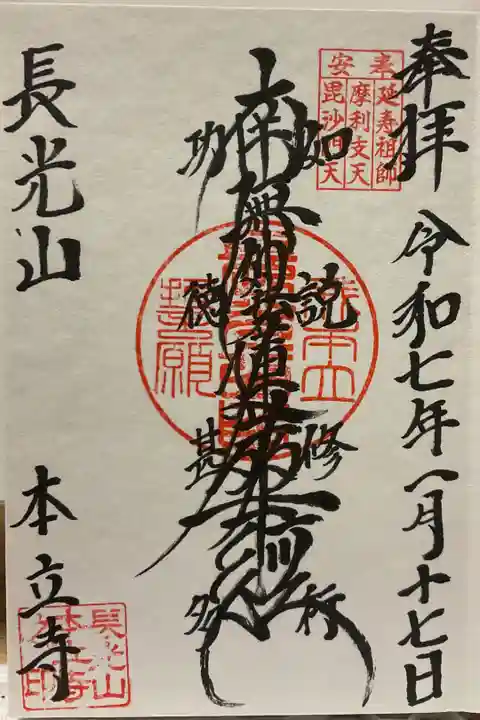 奉拝 令和七年一月十七日
奉安
延寿祖師
摩利支天
毘沙門天
如説修行
南無妙法蓮華経
功徳甚多
我本立
誓願
長光山 本立寺
長光山
本立寺
印